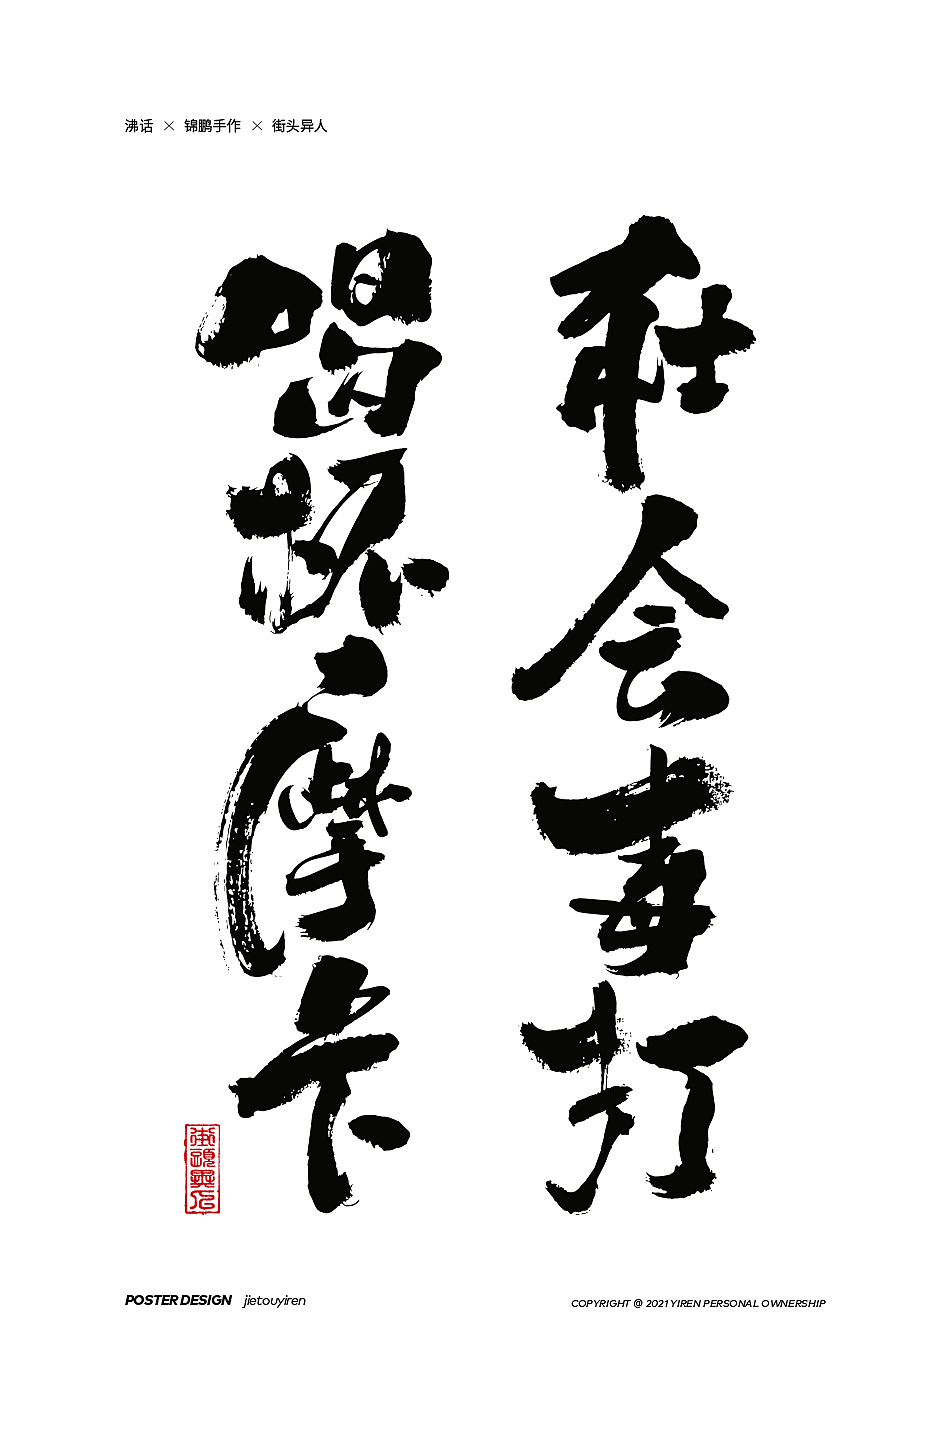 沸话 × 锦鹏手作 × 街头异人
社会事打
喝杯摩卡
街头異人
POSTER DESIGN jietouyiren
COPYRIGHT @ 2021 YIREN PERSONAL OWNERSHIP